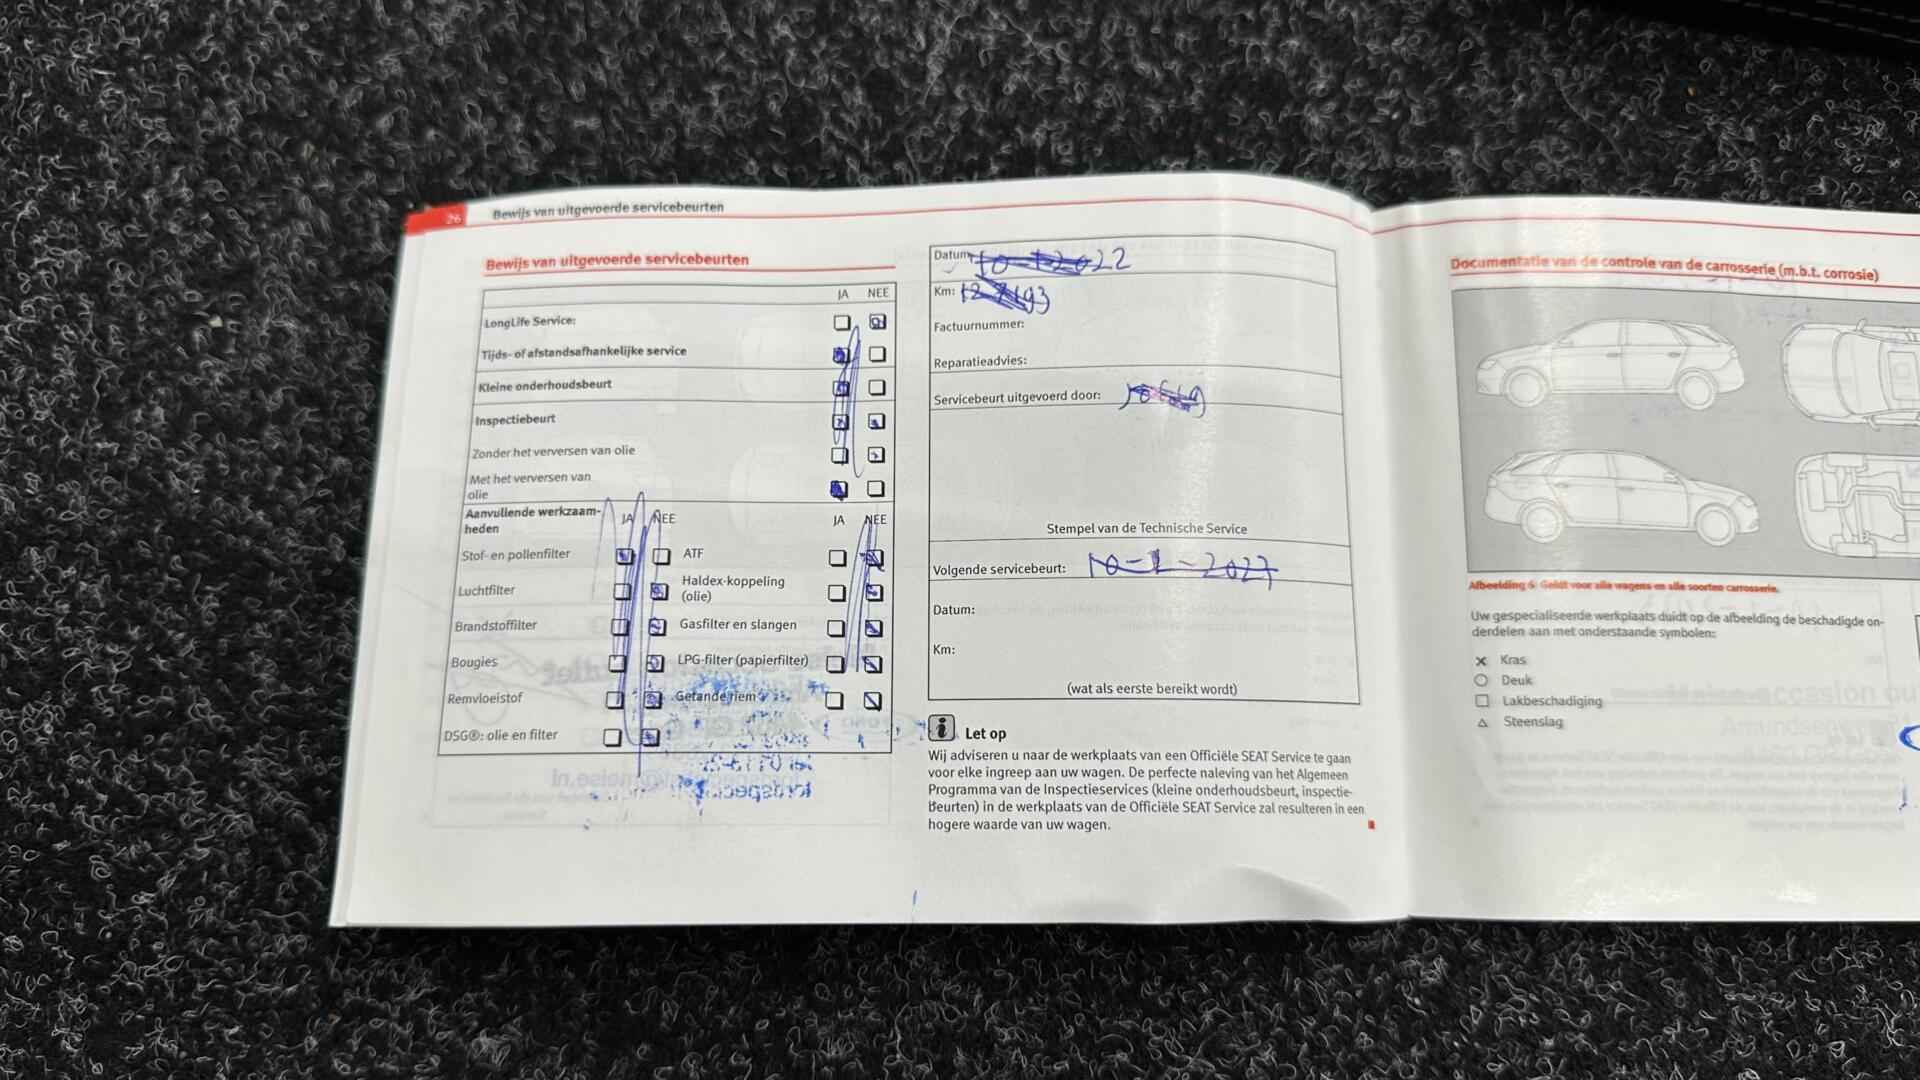 26 Bewijs van uitgevoerde servicebeurten
Bewijs van uitgevoerde servicebeurten
JA NEE
LongLife Service:
Tijds- of afstandsafhankelijke service
Kleine onderhoudsbeurt
Inspectiebeurt
Zonder het verversen van olie
Met het verversen van
olie
Aanvullende werkzaam-
heden
JA NEE
JA NEE
Stof- en pollenfilter
ATF
Luchtfilter
Haldex-koppeling
(olie)
Brandstoffilter
Gasfilter en slangen
Bougies
LPG-filter (papierfilter)
Remvloeistof
Getande riem
DSG®: olie en filter
Datum:
Km:
Factuurnummer:
Reparatieadvies:
Servicebeurt uitgevoerd door:
Stempel van de Technische Service
Volgende servicebeurt:
Datum:
Km:
(wat als eerste bereikt wordt)
Let op
Wij adviseren u naar de werkplaats van een Officiële SEAT Service te gaan
voor elke ingreep aan uw wagen. De perfecte naleving van het Algemeen
Programma van de Inspectieservices (kleine onderhoudsbeurt, inspectie-
beurten) in de werkplaats van de Officiële SEAT Service zal resulteren in een
hogere waarde van uw wagen.
Documentatie van de controle van de carrosserie (m.b.t. corrosie)
Afbeelding 6 Geldt voor alle wagens en alle soorten carrosserie.
Uw gespecialiseerde werkplaats duidt op de afbeelding de beschadigde on-
derdelen aan met onderstaande symbolen:
Kras
Deuk
Lakbeschadiging
Steenslag